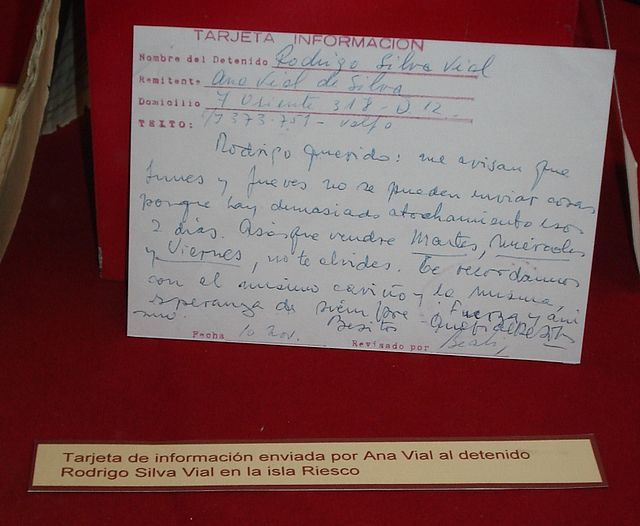 TARJETA INFORMACION
Nombre del Detenido Rodrigo Silva Vial
Remitente Ana Vial de Silva
Domicilio 7 Oriente 318-D 12.
TEXTO: 373-751 - Valpo
Rodrigo Querido: me avisan que
lunes y jueves no se pueden enviar cosas
porque hay demasiado atochamiento esos
2 días. Así que vendre Martes, Miércoles
y Viernes, no te olvides. Te recordamos
con el mismo cariño y la misma,
esperanza de siempre. Fuerza y áni
mo. Besitos
Fecha 10 Nov. Revisado por
Tarjeta de información enviada por Ana Vial al detenido
Rodrigo Silva Vial en la isla Riesco